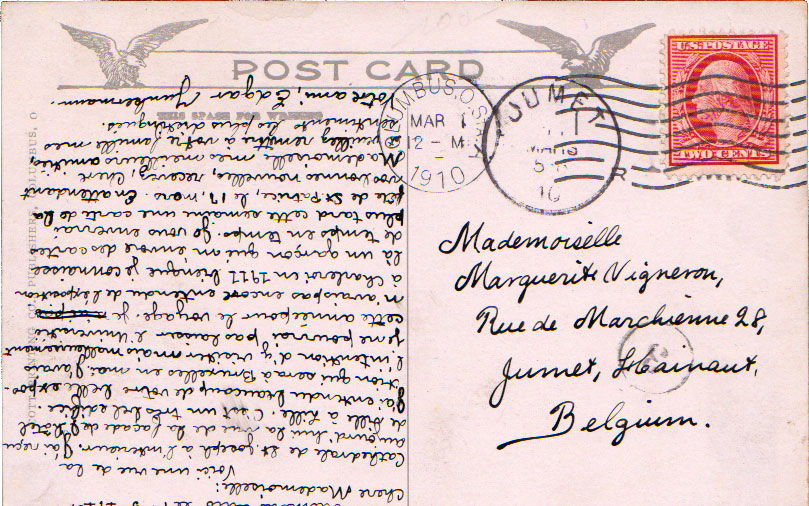 POST CARD
THIS SPACE FOR WRITING
COLUMBUS, O. STA.
MAR 1
12-M
1910
JUMET
MARS
10
R
U.S. POSTAGE
TWO CENTS
Mademoiselle
Marguerite Vigneron,
Rue de Marchienne 28,
Jumet, Hainaut,
Belgium.
Chere Mademoiselle:
Voici une vue de la
Cathedrale de St Joseph à l'interieur. J'ai reçu
aujourd'hui la vue de la façade de l'Hôtel
de Ville à Lille. C'est un très bel edifice.
J'ai entendu beaucoup de votre belle expo-
sition qui sera à Bruxelles en mai. J'avais
l'intention d'y visiter mais malheureusement
je ne pourrai pas laisser l'Université
cette année pour le voyage. Je
n'avais pas encore entendu de l'exposition
à Charleroi en 1911 bien que je connaisse
là un garçon qui envoie des cartes
de temps en temps. Je vous enverrai
plus tard cette semaine une carte de la
fête de St Patrice, le 17, mars. En attendant
vos bonnes nouvelles, recevez, chère
Mademoiselle mes meilleurs amitiés,
veuillez remettre à votre famille mes
sentiments les plus distingués.
Votre ami, Edgar Junkermann.
PUBLISHERS, COLUMBUS, O